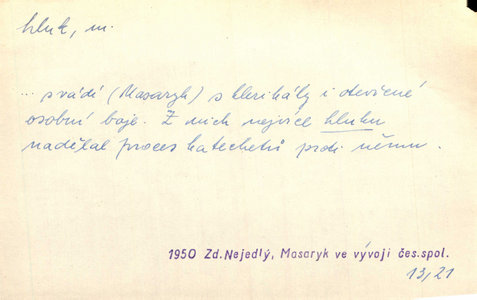 hluk, m.
... svádí (Masaryk) s klerikály i otevřené
osobní boje. Z nich nejvíce hluku
nadělal proces katechetů proti němu.
1950 Zd.Nejedlý, Masaryk ve vývoji čes.spol.
13/21